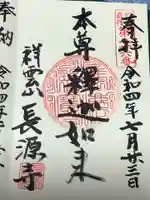 奉拝
令和四年七月廿三日
本尊釋迦如来
祥雲山
長源寺
奉納